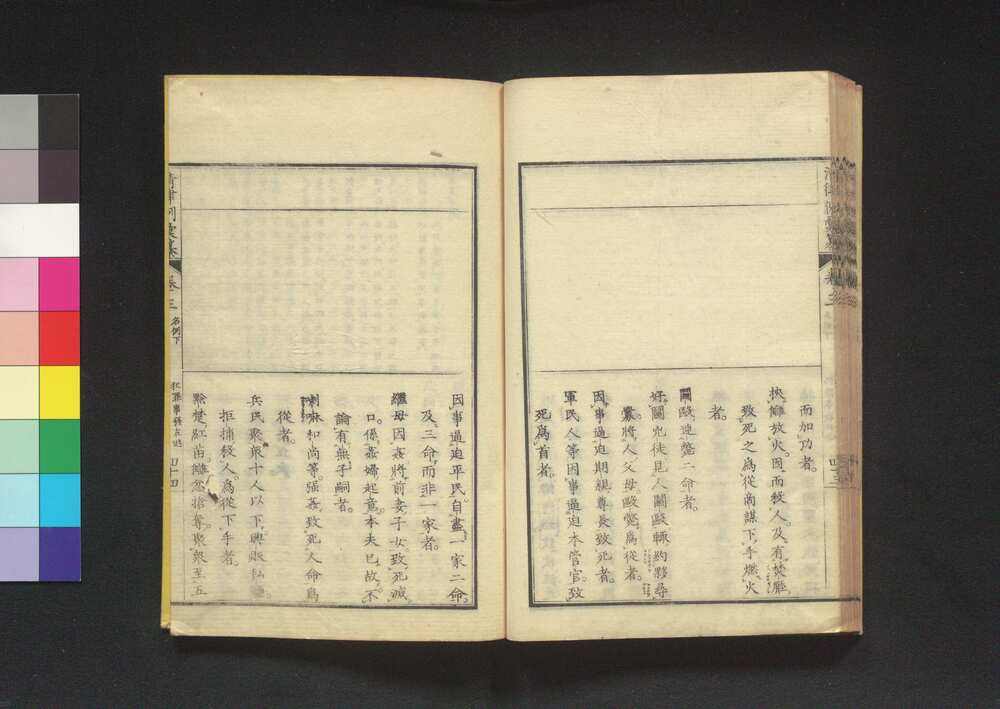 而加功者。
挾讐放火。因而殺人及有焚壓
致死之爲從商謀下手燃火
者。
鬪毆連斃二命者。
好鬪兇徒見人鬪毆輒約夥尋
釁將人父母毆斃爲從者。
因事逼迫期親尊長致死者。
軍民人等因事逼迫本管官。致
死爲首者。
因事逼迫平民自盡一家二命
及三命而非一家者。
繼母因姦將前妻子女致死滅
口。係姦婦起意本夫已故。不
論有無子嗣者。
喇嘛和尚等。强姦致死人命爲
從者。
兵民聚衆十人以下。興販私
拒捕殺人。爲從下手者。
黔楚紅苗讐忿搶奪。聚衆至五
清律例彙纂
卷三
名例下
四十四